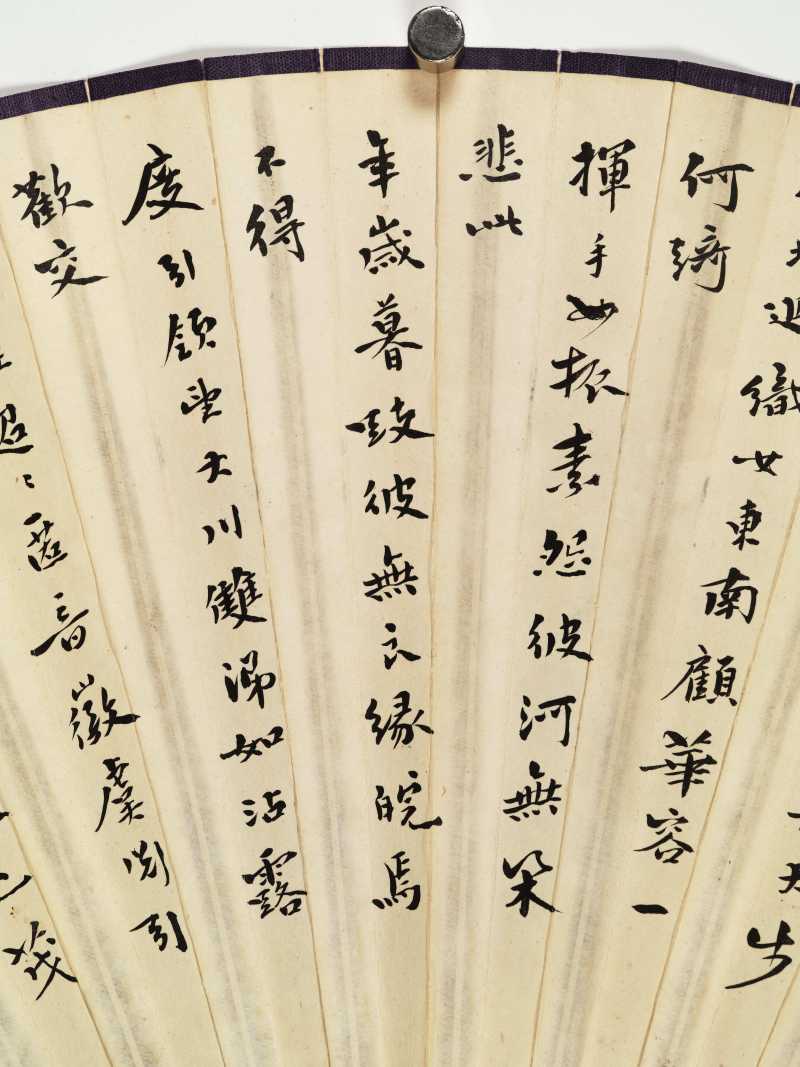 天步
北迴織女東南顧華容一
何綺
揮手如振素怨彼河無梁
悲此
年歲暮跂彼無良緣睆焉
不得
度引領望大川雙涕如沾露
歡友
迢〻匿音徽虞淵引
已茂